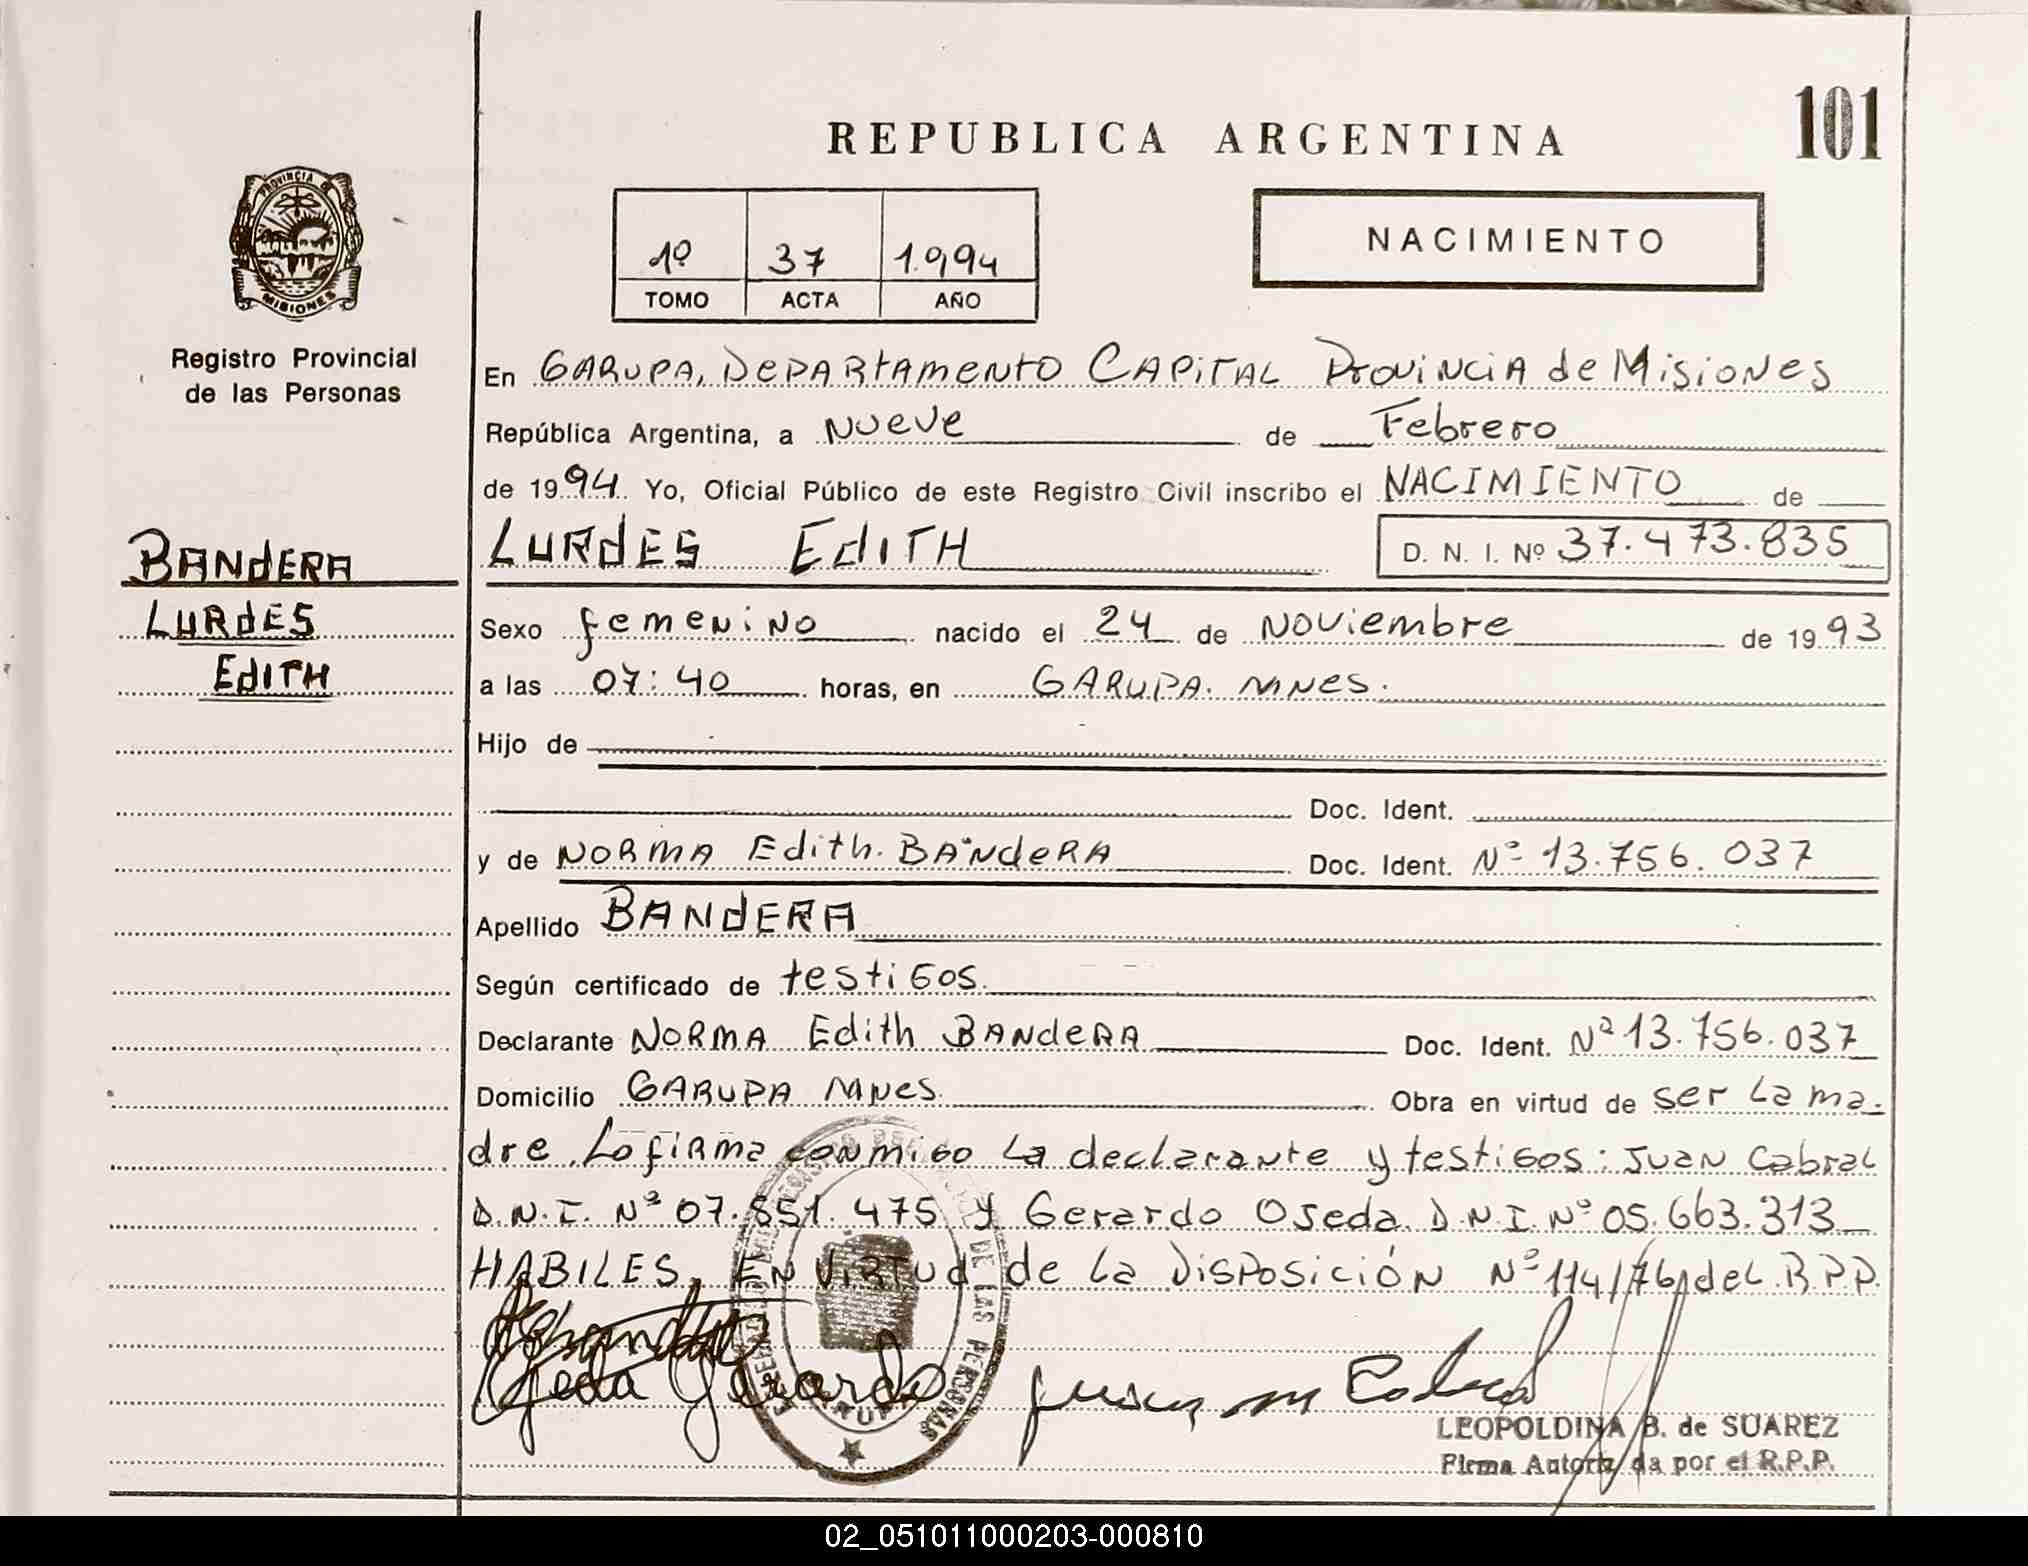 101
REPUBLICA ARGENTINA
PROVINCIA D
MISIONES
Registro Provincial
de las Personas
1º 37 1.994
TOMO ACTA AÑO
NACIMIENTO
En GARUPA, DepARtAmento CAPITAL Provincia de Misiones
República Argentina, a Nueve de Febrero
de 1994. Yo, Oficial Público de este Registro Civil inscribo el NACIMIENTO de
BANdERA
LURdES
EdITH
LURdES EdITH D. N. I. Nº 37.473.835
Sexo femenino nacido el 24 de Noviembre de 1993
a las 07:40 horas, en GARUPA. MNes.
Hijo de
Doc. Ident.
y de NORMA Edith. BANdeRA Doc. Ident. Nº 13.756.037
Apellido BANdERA
Según certificado de testigos.
Declarante NORMA Edith BANdeRA Doc. Ident. Nº 13.756.037
Domicilio GARUPA MNes. Obra en virtud de ser La ma.
dre. Lo firma conmigo La declarante y testigos: Juan Cabral
D.N.I. Nº 07.851.475 y Gerardo Oseda D.N.I. Nº 05.663.313
HABILES, EN VIRTUD de La Disposición Nº 114/76 del R.P.P.
DE LAS PERSONAS
Ojeda Gerardo
LEOPOLDINA B. de SUAREZ
Firma Autorizada por el R.P.P.
02_051011000203-000810